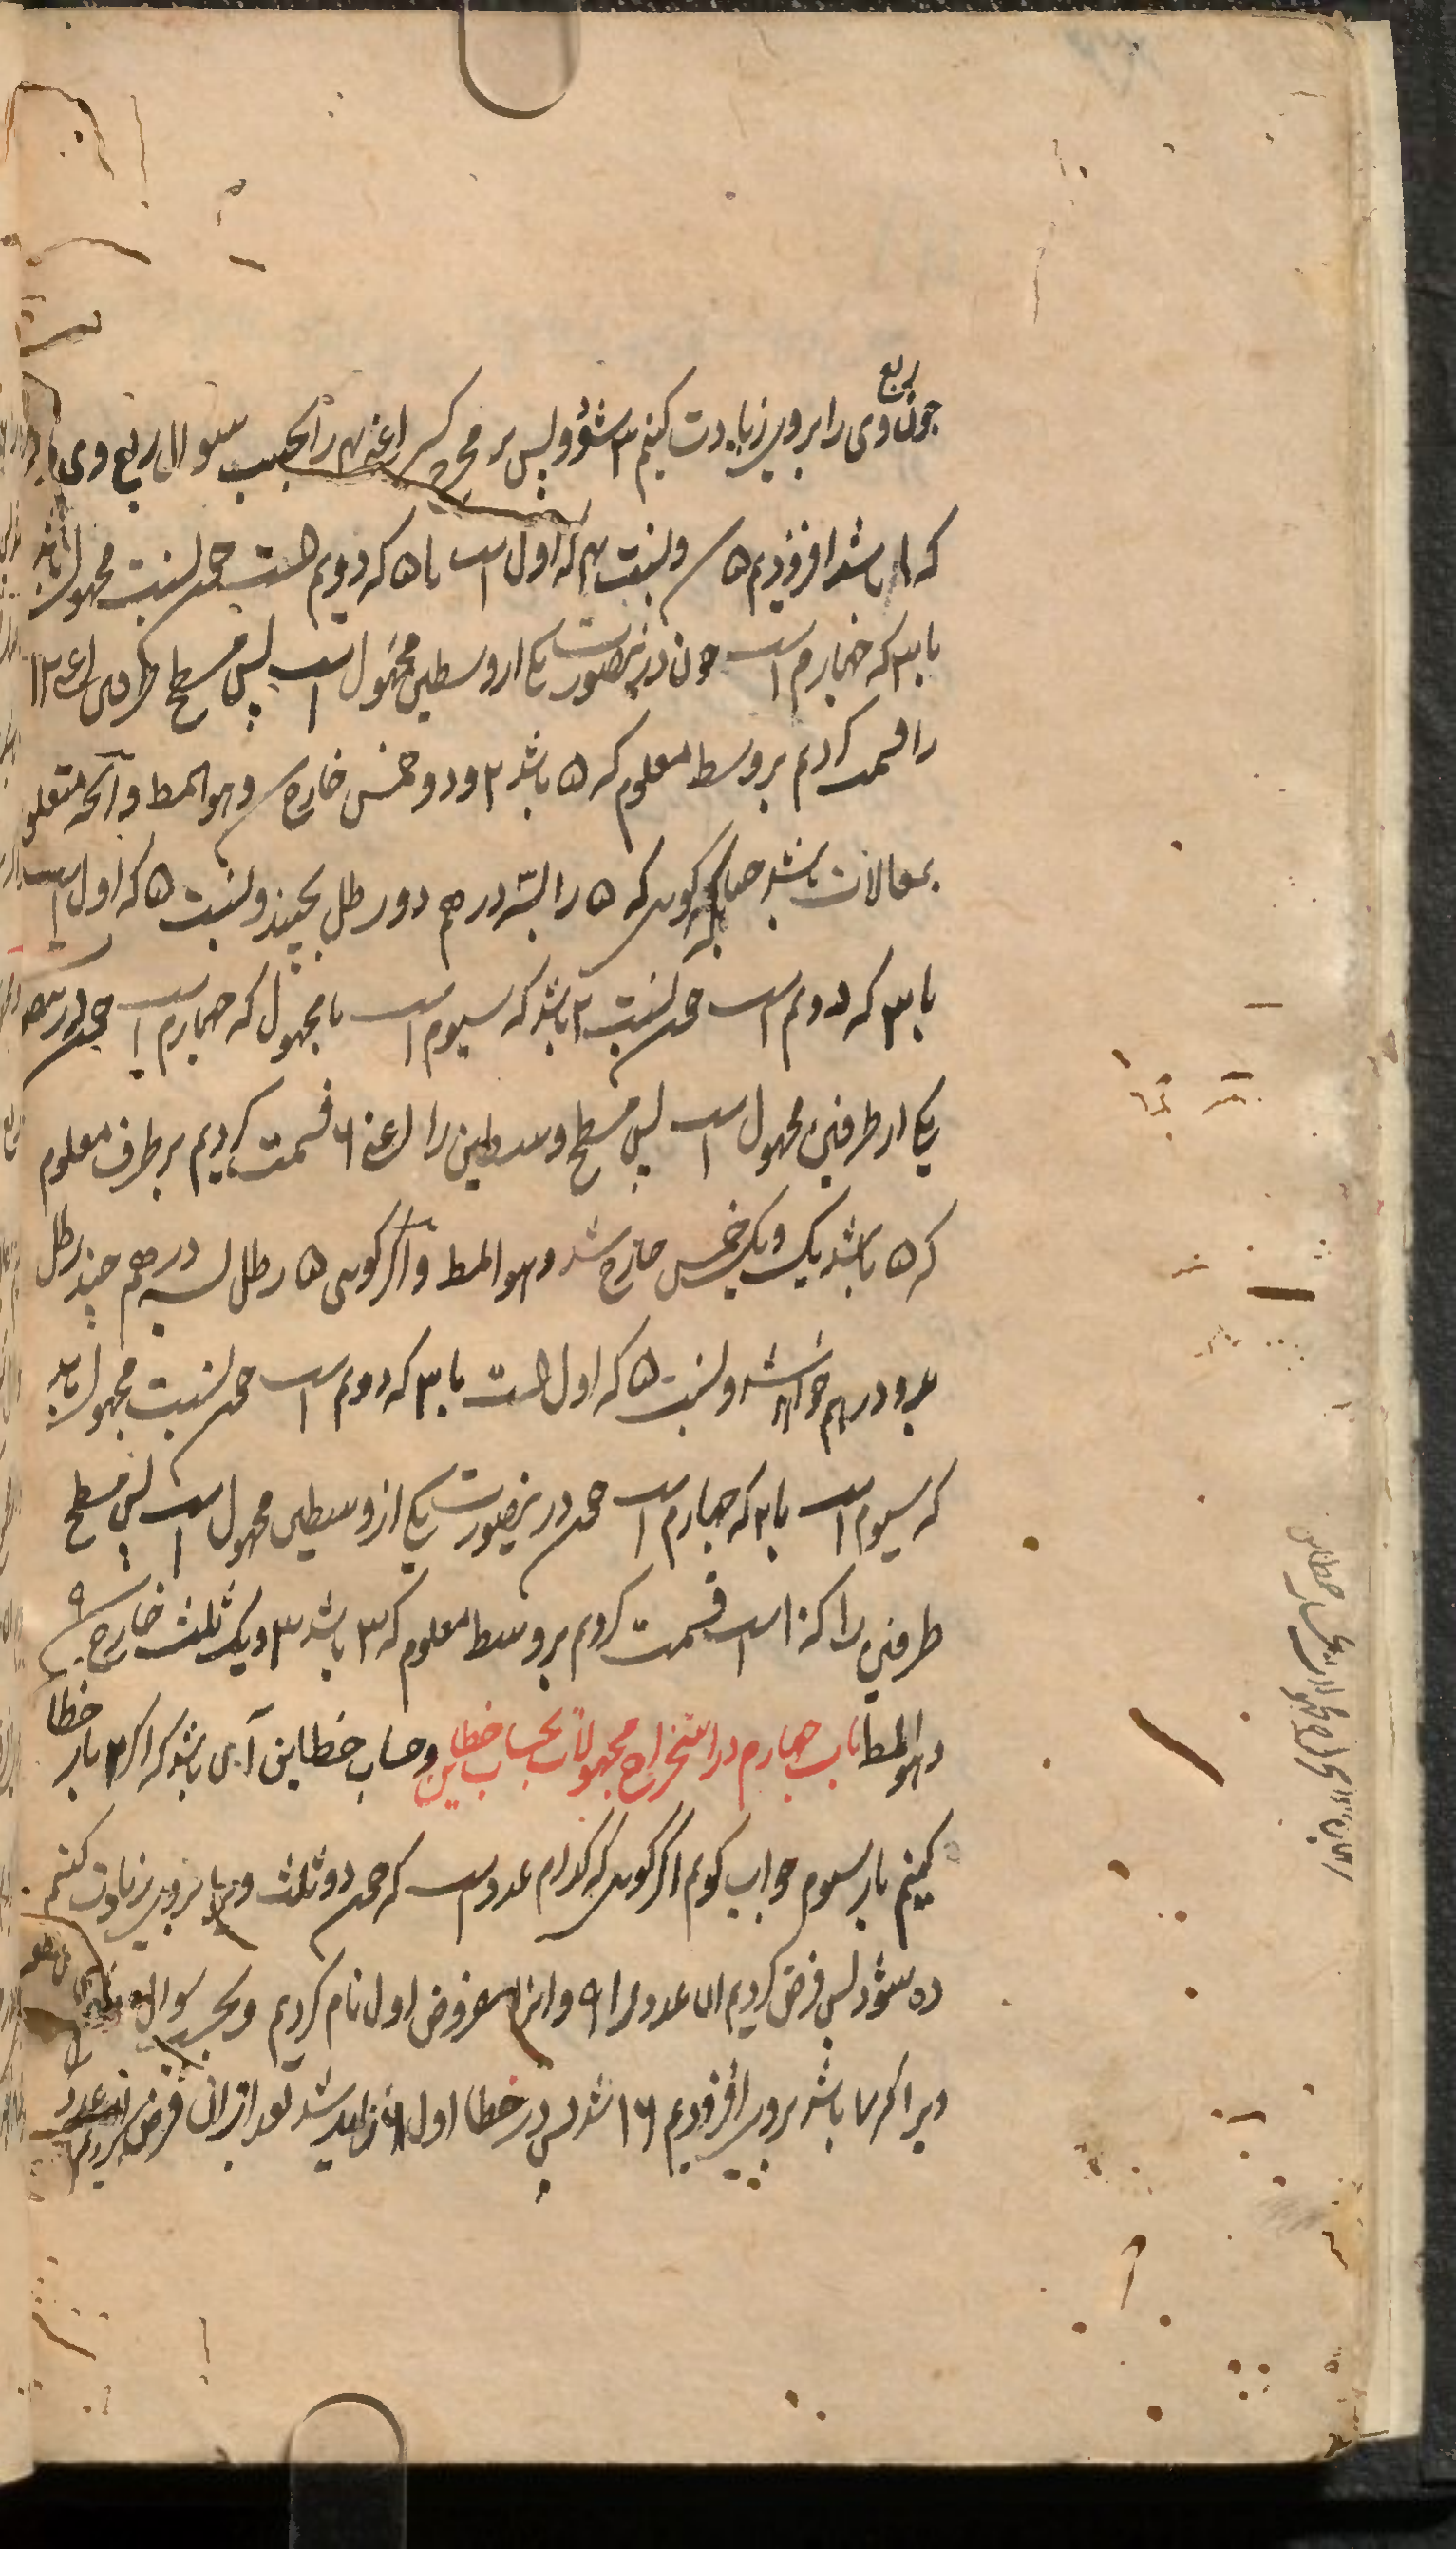 چون ربع وی را بر وی زیادت کنیم ۳ شود پس بر مخرج کسر اعنی ۴ را بحسب سوال ربع وی
که ۱ باشد افزودیم ۵ شد ونسبت ۴ که اول است با ۵ که دویم است چون نسبت مجهول باشد
با ۳ که چهارم است چون درینصورت یکی از وسطین مجهول است پس مسطح طرفین اعنی ۱۲
را قسمت کردیم بر وسط معلوم که ۵ باشد ۲ و دو خمس خارج شد وهو المط وآنچه متعلق
بمعاملات باشد چنانکه گوی که ۵ را بسه درهم دو رطل بچند ونسبت ۵ که اول است
با ۳ که دویم است چون نسبت ۲ باشد که سیوم است با مجهول که چهارم است چون درینصو
یکی از طرفین مجهول است پس مسطح وسطین را اعنی ۶ قسمت کردیم بر طرف معلوم
که ۵ باشد یک ویک خمس خارج شد وهو المط واگر گوی ۵ رطل بسه درهم چند رطل
بدو درهم خواهد شد ونسبت ۵ که اول است با ۳ که دویم است چون نسبت مجهول باشد
که سیوم است با ۲ که چهارم است چون درینصورت یکی از وسطین مجهول است پس مسطح
طرفین را که ۱۰ است قسمت کردیم بر وسط معلوم که ۳ باشد ۳ ویک ثلث خارج شد
وهو المط باب چهارم در استخراج مجهولات بحساب خطاین وحساب خطاین آن باشد که اگر ۲ بار خطا
کنیم بار سیوم جواب گویم اگر گوی که کدام عدد است که چون دو ثلث ویرا بر وی زیادت کنیم
ده شود پس فرض کردیم ان عدد را ۹ وانرا مفروض اول نام کردیم وبحسب سوال
ویرا که ۷ باشد بر وی افزودیم ۱۶ شد پس در خطا اول ۶ زاید شد بعد از ان فرض کردیم